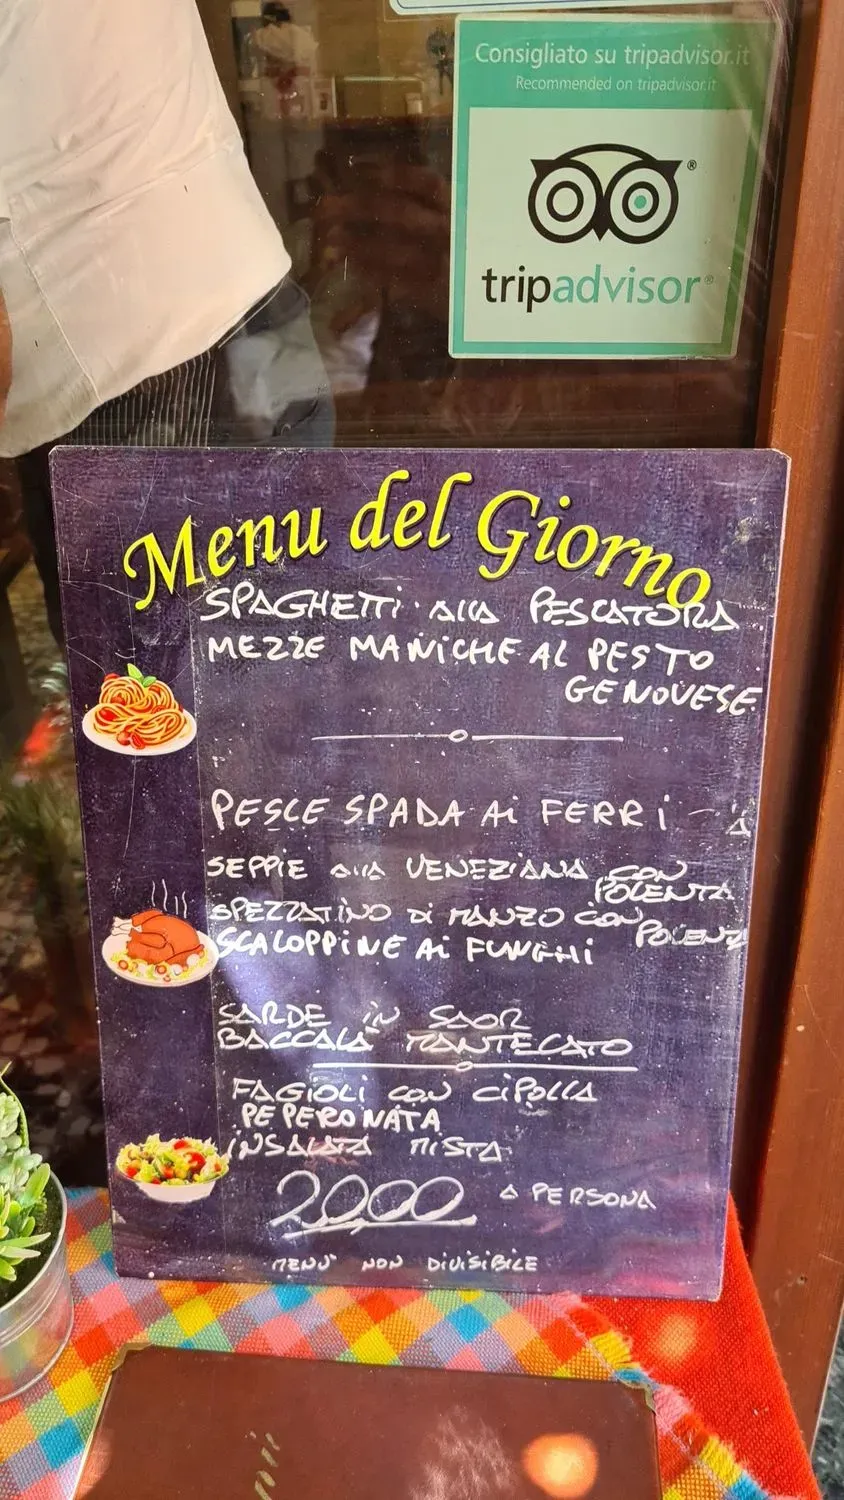 Consigliato su tripadvisor.it
Recommended on tripadvisor.it
tripadvisor®
Menu del Giorno
SPAGHETTi alla PESCATORA
MEZZE MANiCHE AL PESTO
GENOVESE
PESCE SPADA Ai FERRi
SEPPIE alla VENEZIANA CON
POLENTA
SPEZZATINO Di MANZO CON
POLENTA
SCALOPPiNE Ai FUNGHi
SARDE iN SAOR
BACCALA' MANTECATO
FAGIOLi CON CiPOLLA
PEPERONATA
iNSALATA MiSTA
20,00 A PERSONA
MENU' NON DIVISIBILE